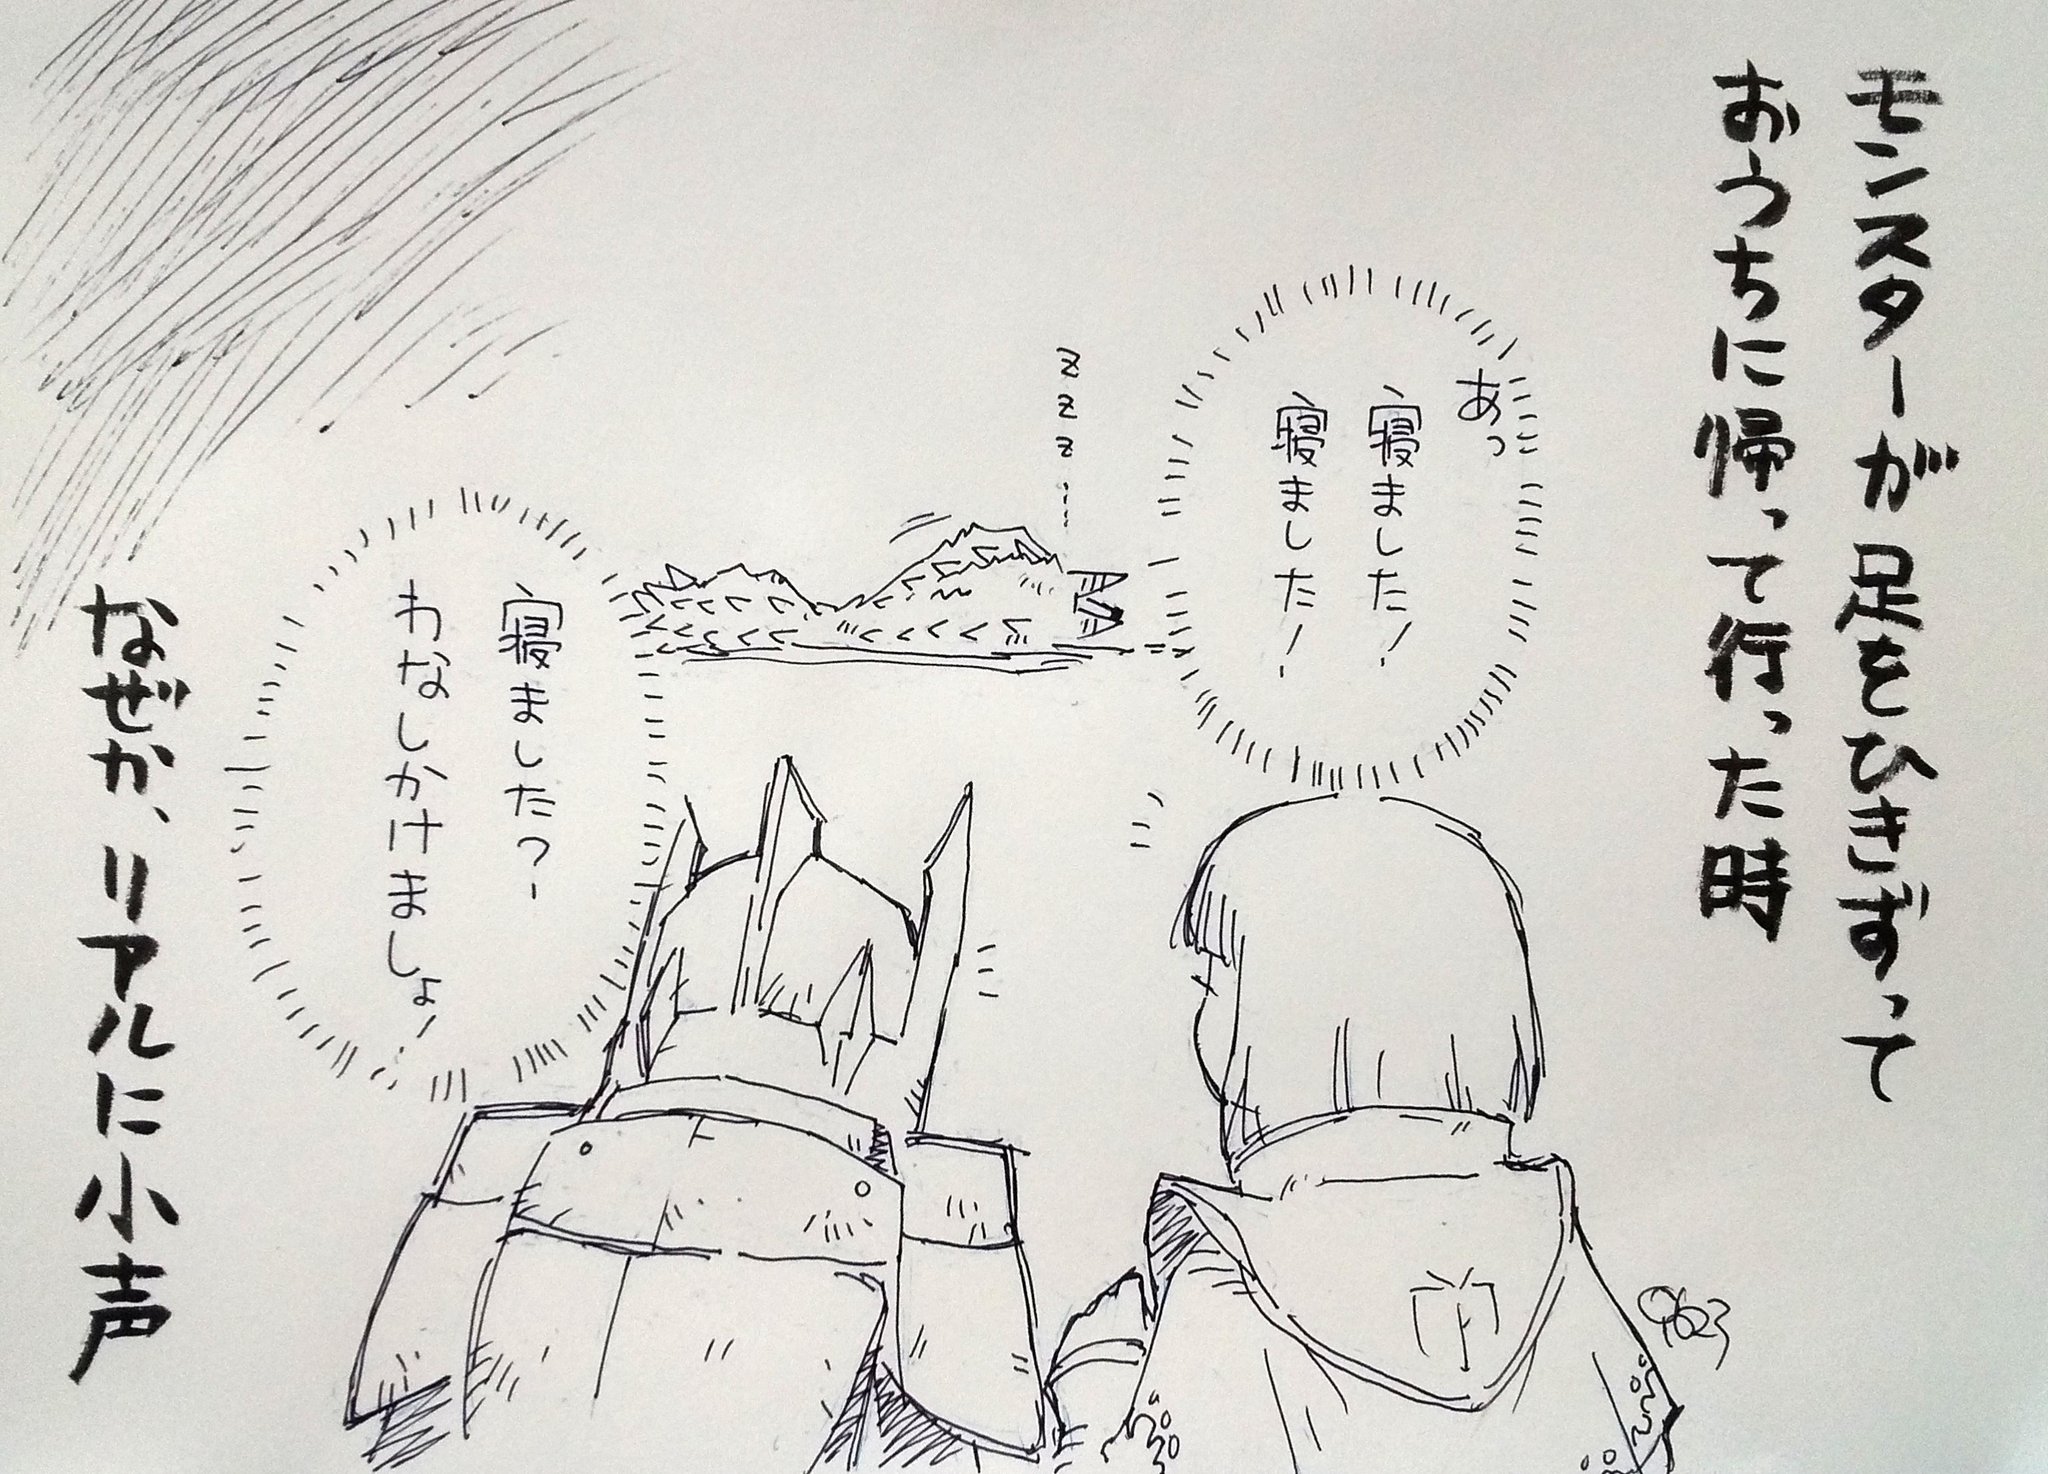 モンスターが足をひきずって
おうちに帰って行った時
あっ
寝ました!
寝ました!
zzz…
寝ました?
わなしかけましょ!
なぜか、リアルに小声